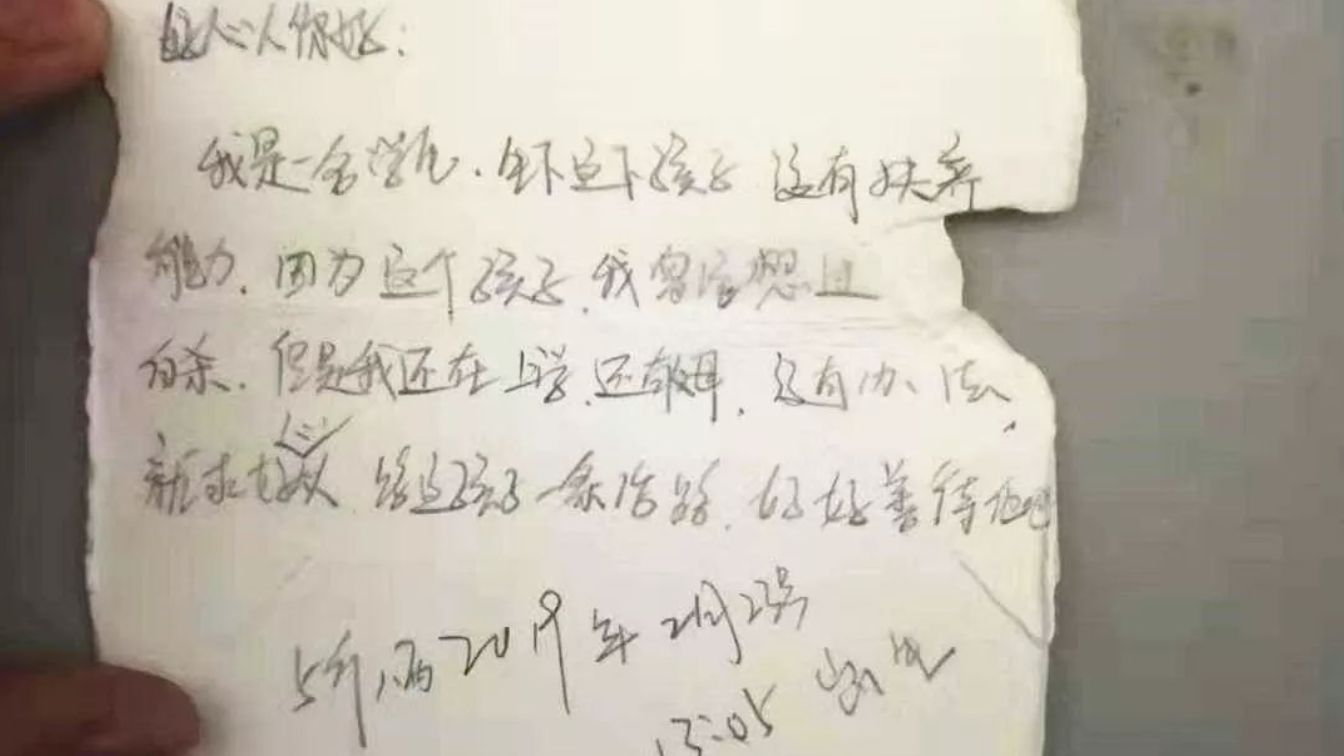 好心人你好:
我是一名学生.生下这个孩子 没有扶养
能力.因为这个孩子.我曾经想过
自杀.但是我还在上学.还有父母.没有办法,
求好心人 给这孩子一条活路.好好善待他吧
5斤八两 2019年2月2号
13:05